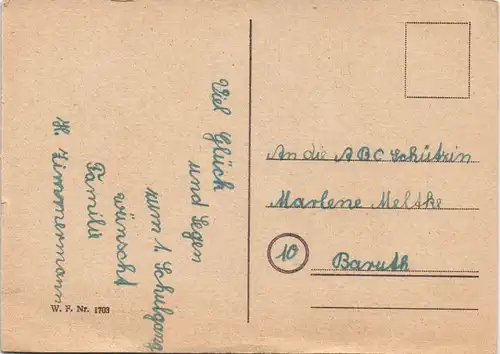 Viel Glück
und Segen
zum 1. Schulgang
wünscht
Familie
H. Zimmermann
W. F. Nr. 1703
An die ABC Schützin
Marlene Meltke
10
Baruth